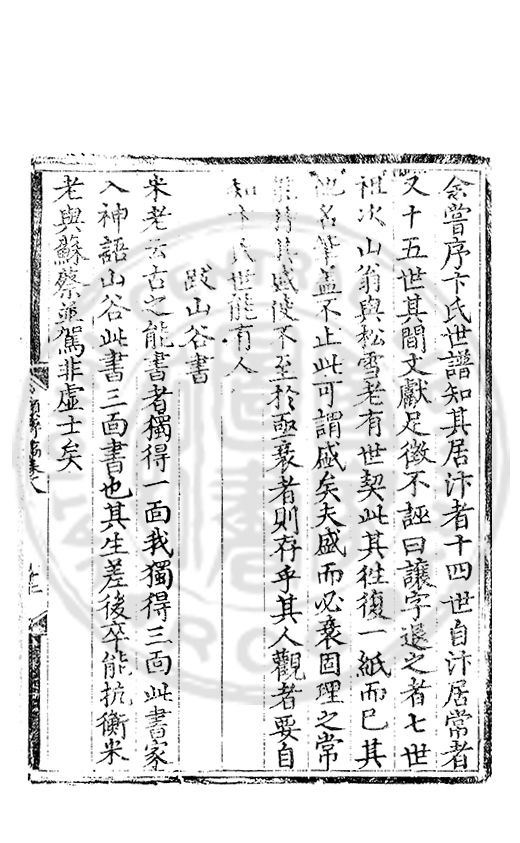 余嘗序卞氏世譜知其居汴者十四世自汴居常者
又十五世其間文獻足徵不誣曰讓字退之者七世
祖次山翁與松雪老有世契此其往復一紙而已其
他名筆盖不止此可謂盛矣夫盛而必衰固理之常
其盛使不至於亟衰者則存乎其人觀者要自
知卞氏世能有人
跋山谷書
米老云古之能書者獨得一面我獨得三面此書家
入神語山谷此書三面書也其生差後卒能抗衡米
老與蘇蔡並駕非虛士矣